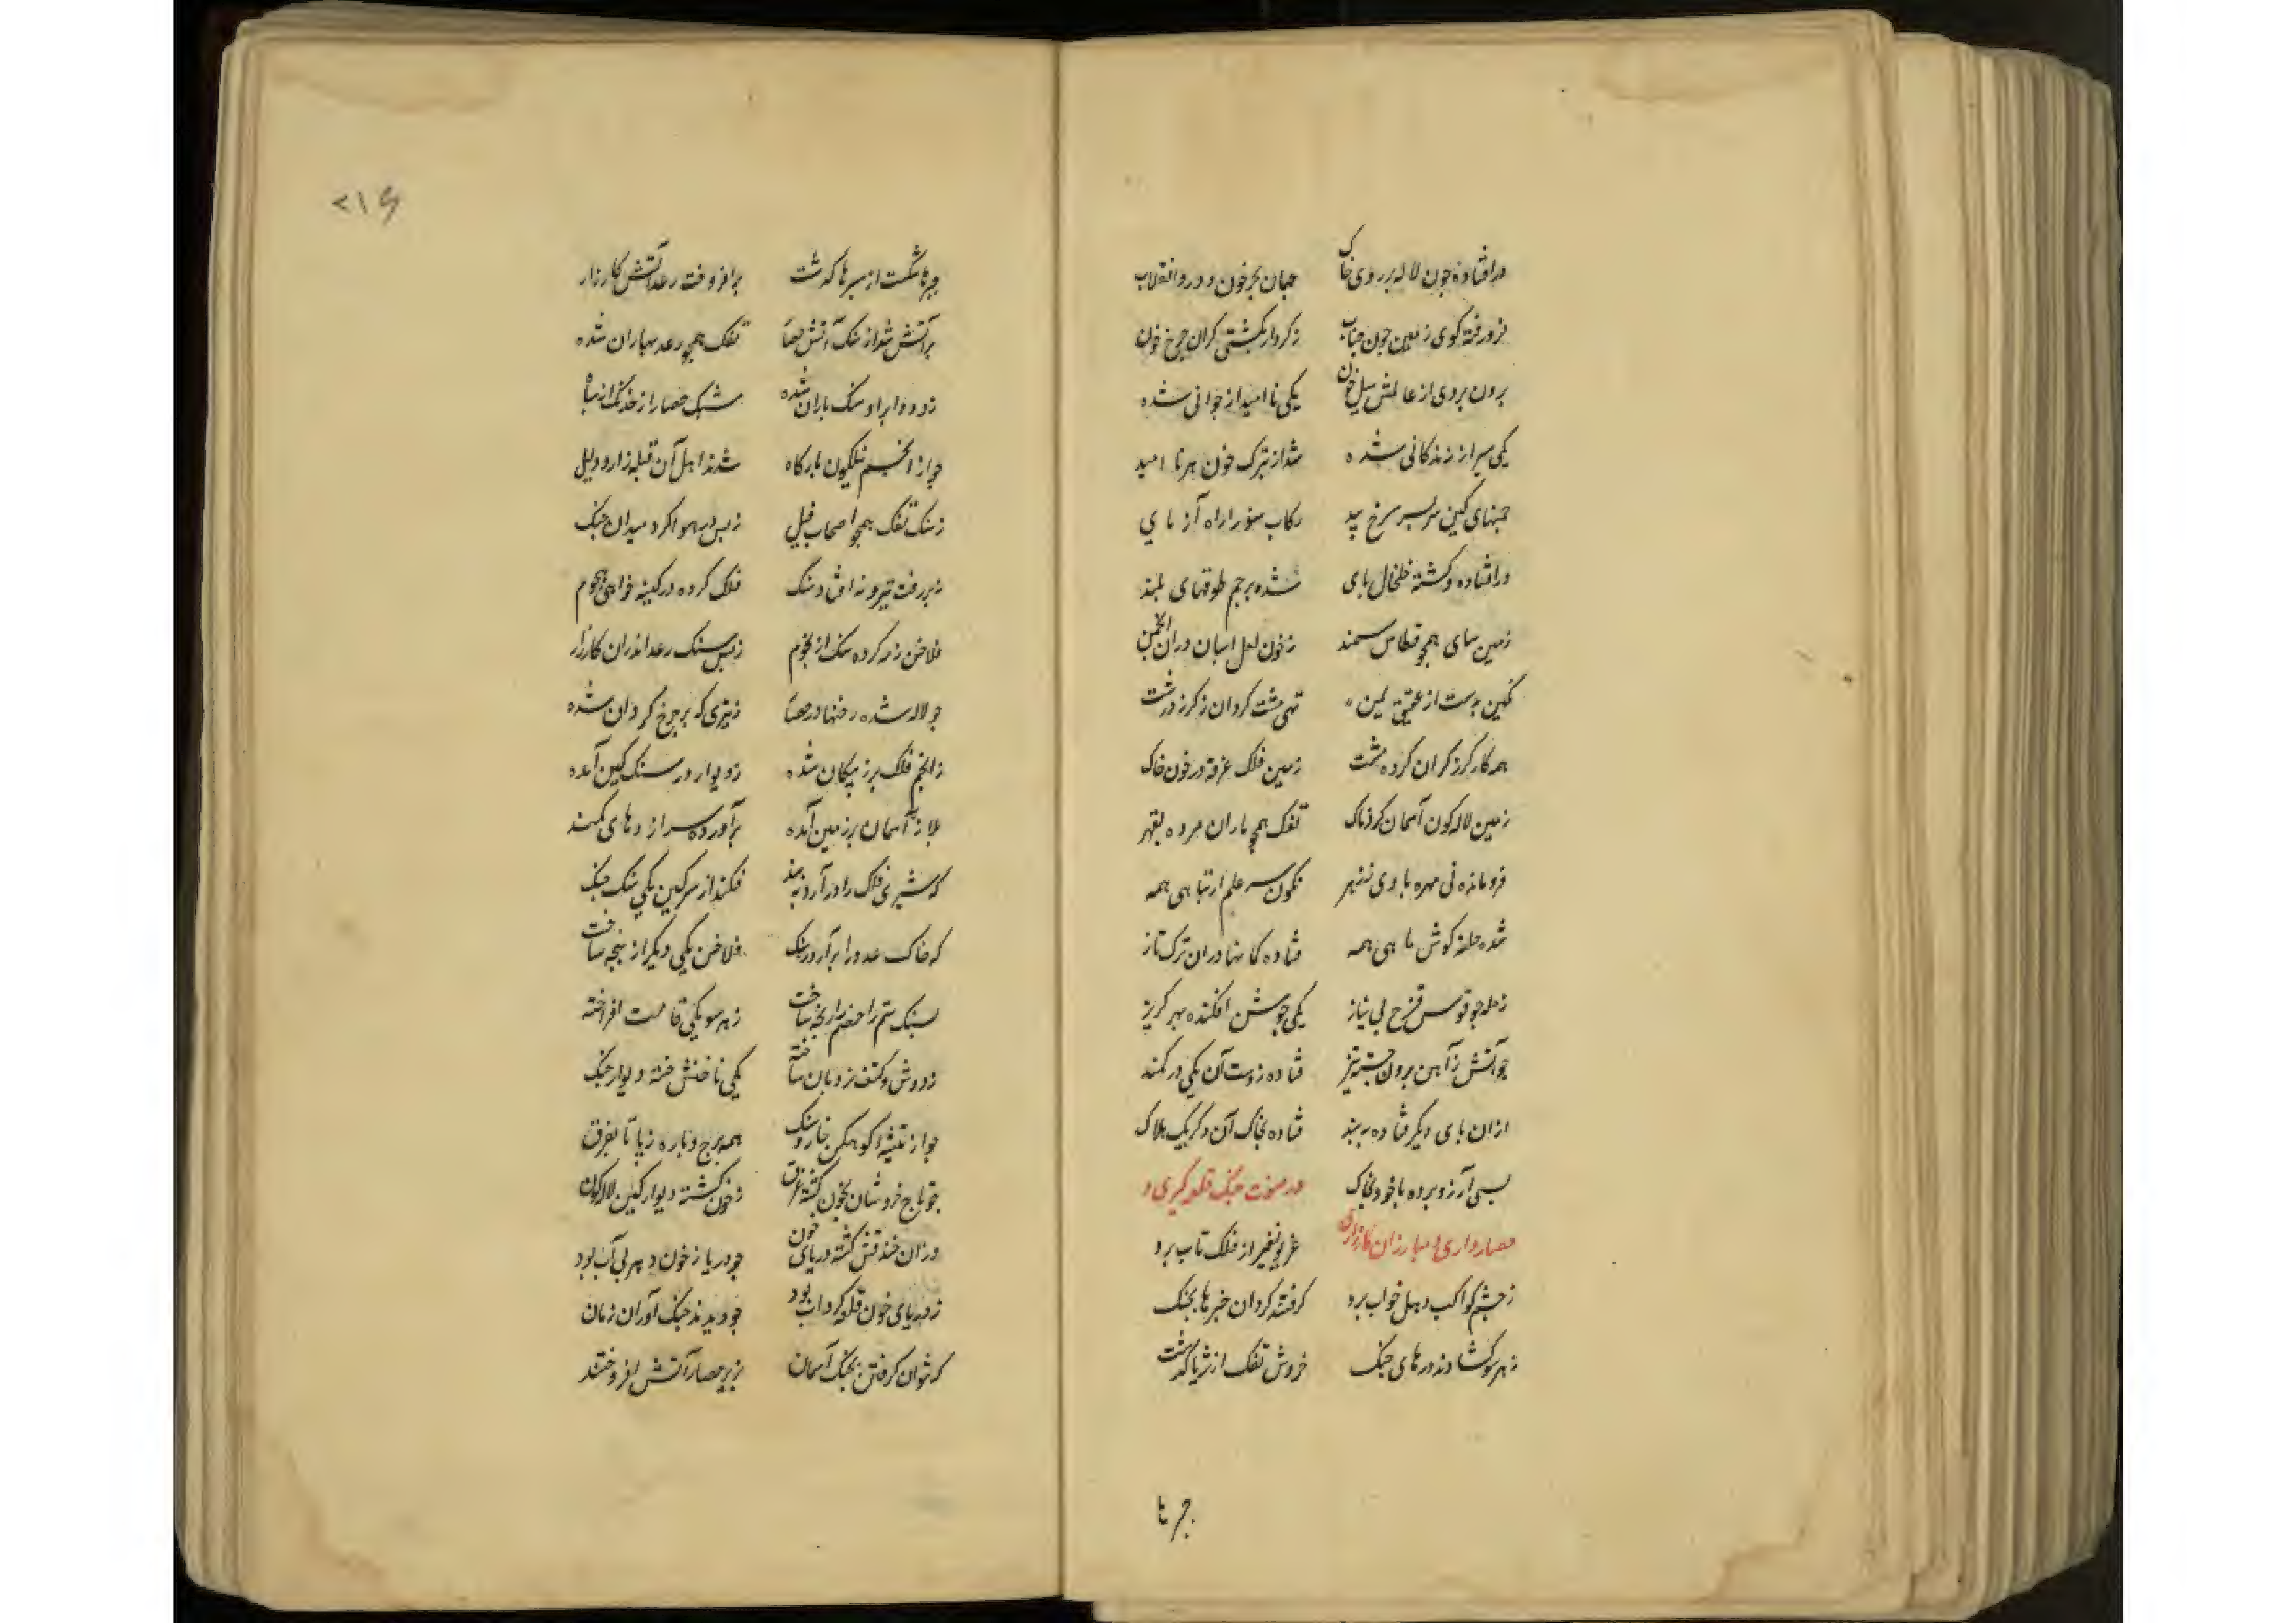 درافتاده چون لاله بر روی خاک جهان بحر خون و درو انقلاب
فرو رفته گوی زمین چون حباب ز کردار کشتی گران چرخ خون
برون بردی از عالمش سیل خون یکی ناامید از جوانی شده
یکی سیر از زندگانی شده شد از ترک خون هر نا امید
کین سربسر سرخ بید رکاب سفر را راه آزمای
درافتاده و کشته خلخال پای شده پرچم طوقهای بلند
زمین سای همچو قطاس سمند ز خون لعل اسبان دران انجمن
نگین بدست از عقیق یمن تهی مشت کردان ز گرز درشت
همه کار گرز گران کرده مشت زمین فلک غرقه در خون خاک
زمین لاله کون آسمان کردناک تفک همچو ماران مرده بقهر
فرو مانده نی مهره با وی نه زهر نگون سر علم از تباهی همه
شده حلقه کوش ماهی همه فتاده کمانها دران ترک تاز
ز حله چو قوس قزح بی نیاز یکی جوشن افکنده بهر گریز
چو آتش ز آهن برون جسته تیز فتاده ز دست آن یکی در کمند
ازان پای دیگر فتاده به بند فتاده بخاک آن دگر یک هلاک
بسی آرزو برده با خود بخاک در صفت جنگ قلعه گیری و
حصار داری و مبارزان کارزاری غریو نفیر از فلک تاب برد
ز چشم کواکب دهل خواب برد گرفتند کردان خبرها بجنگ
ز هر سو گشادند درهای جنگ خروش تفک از ثریا گذشت
چرها
۲۱۶
چرها شکست از سپرها گذشت برافروخت رعد آتش کارزار
پر آتش شد از سنگ آتش حصار تفک همچو رعد بهاران شده
ز دود ابر او سنگ باران شده مشبک حصار از خدنگ
چو از انجم نیلگون بارگاه شدند اهل آن قبله زار و ذلیل
ز سنگ تفک همچو اصحاب فیل ز بس در هوا کرد میدان جنگ
زبر رفت تیر و نه افتاد سنگ فلک کرده در کینه خواهی هجوم
فلاخن ز مه کرده سنگ از نجوم ز بس سنگ رعد اندران کارزار
چو لاله شده رخنها در حصار ز تیری که بر چرخ کردان شده
ز انجم فلک پر ز پیکان شده ز دیوار و در سنگ کین آمده
بلا ز آسمان بر زمین آمده برآورده سر اژدهای کمند
که شیر فلک را در آرد به بند فکند از سر کین یکی سنگ جنگ
که خاک عدو را برآرد سنگ فلاخن یکی دیگر از پنجه ساخت
بسنگ ستم را رنجه ساخت ز هر سو یکی قامت افراخته
ز دوش و کتف نردبان ساخته یکی ناخنش خسته دیوار جنگ
چو از تیشه کوهکن خاره سنگ همه برج و باره ز پا تا بفرق
چو تاج خروسان بخون گشته غرق ز خون کشته دیوار کین لاله گون
دران خندقش گشته دریای خون چو دریا ز خون دهر بی آب بود
ز دریای خون قلعه گرداب بود چو دیدند جنگ آوران زمان
که نتوان گرفتن بجنگ آسمان بزیر حصار آتش افروختند